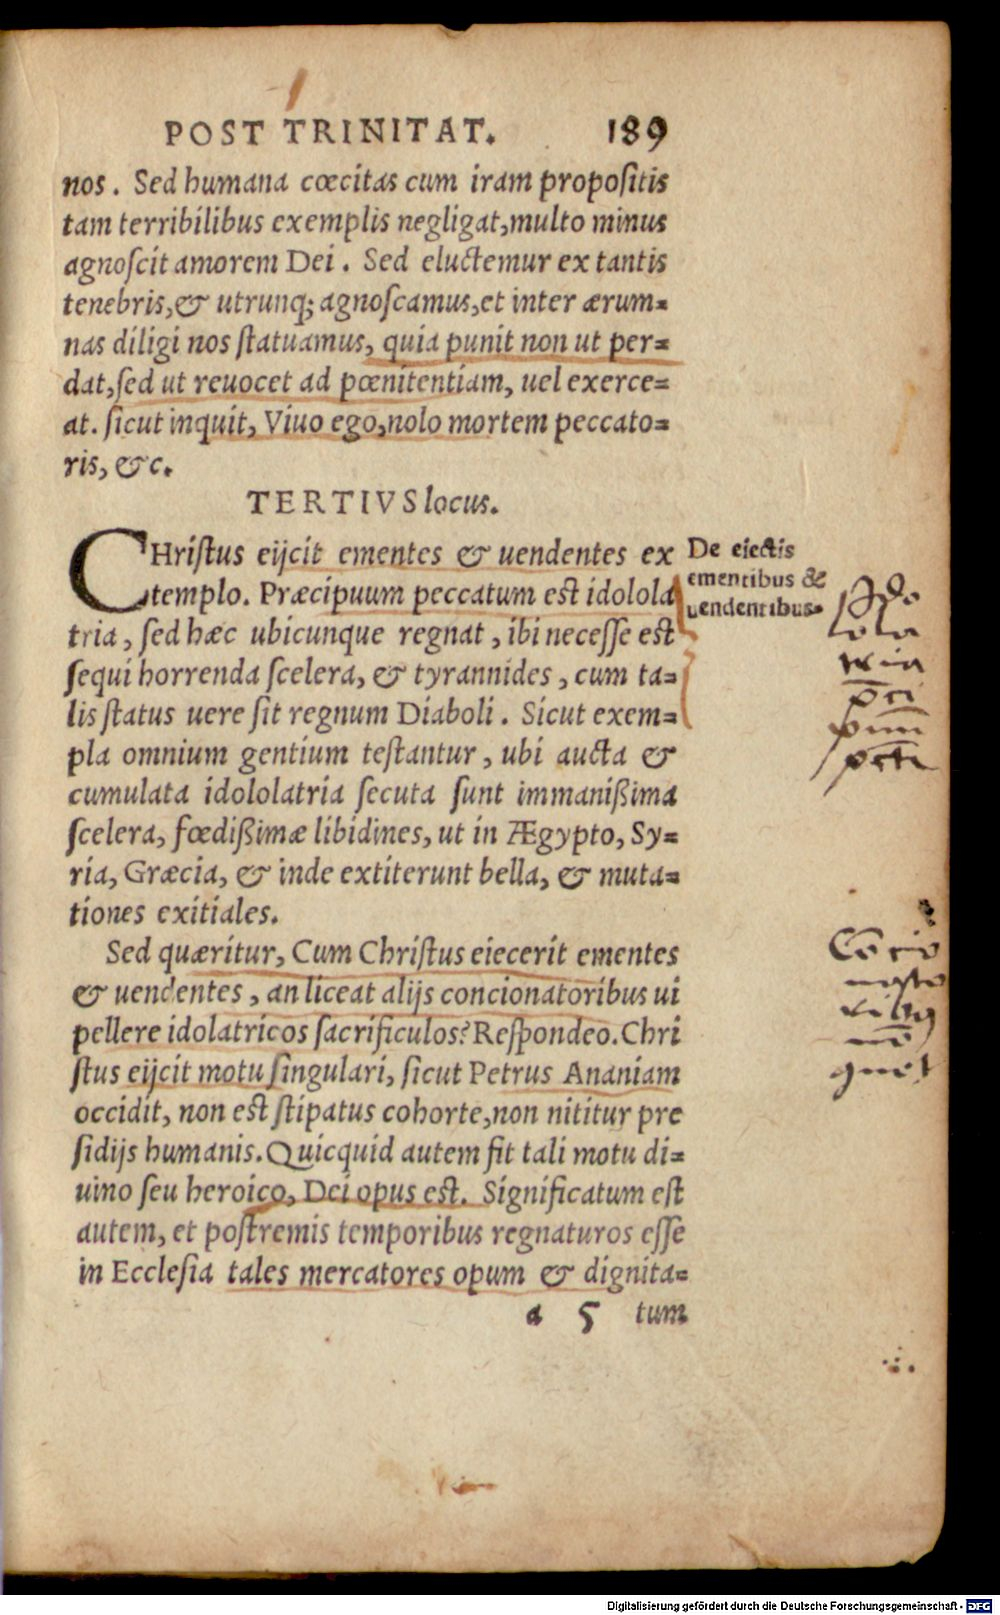 POST TRINITAT. 189
nos. Sed humana cœcitas cum iram propositis
tam terribilibus exemplis negligat, multo minus
agnoſcit amorem Dei. Sed eluctemur ex tantis
tenebris, & utrunq; agnoſcamus, et inter ærum=
nas diligi nos ſtatuamus, quia punit non ut per=
dat, ſed ut reuocet ad pœnitentiam, uel exerce=
at. ſicut inquit, Viuo ego, nolo mortem peccato=
ris, &c.
TERTIVS locus.
CHriſtus eijcit ementes & uendentes ex
templo. Præcipuum peccatum est idolola
tria, ſed hæc ubicunque regnat, ibi neceſſe est
ſequi horrenda ſcelera, & tyrannides, cum ta=
lis ſtatus uere ſit regnum Diaboli. Sicut exem=
pla omnium gentium teſtantur, ubi aucta &
cumulata idololatria ſecuta ſunt immanißima
ſcelera, fœdißimæ libidines, ut in Ægypto, Sy=
ria, Græcia, & inde extiterunt bella, & muta=
tiones exitiales.
De eiectis
ementibus &
uendentibus.
Sed quæritur, Cum Chriſtus eiecerit ementes
& uendentes, an liceat alijs concionatoribus ui
pellere idolatricos ſacrificulos? Reſpondeo. Chri
ſtus eijcit motu ſingulari, ſicut Petrus Ananiam
occidit, non est ſtipatus cohorte, non nititur pre
ſidijs humanis. Quicquid autem fit tali motu di=
uino ſeu heroico, Dei opus est. Significatum est
autem, et poſtremis temporibus regnaturos eſſe
in Eccleſia tales mercatores opum & dignita=
a 5 tum
Digitalisierung gefördert durch die Deutsche Forschungsgemeinschaft - DFG